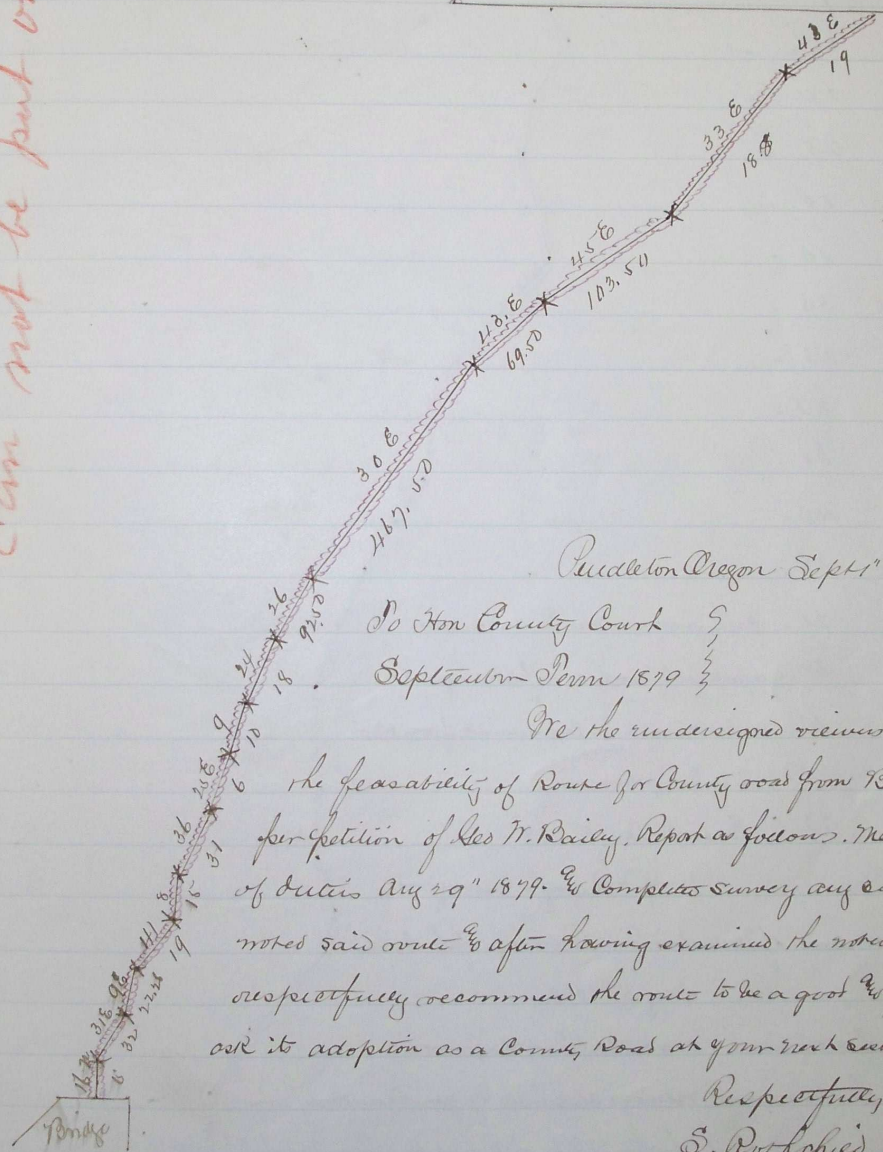 Can not be put
43 E
19
33 E
18.
45 E
103.50
43. E
69.50
30 E
467. 50
26
92.50
24
18
9
10
25 E
6
36
31
8
15
41
19
22.
31 E
32
6
Bridge
Pendleton Oregon Sept 1"
To Hon County Court
September Term 1879
We the undersigned viewers
the feasability of Route for County road from
per petition of Geo W. Bailey. Report as follows. Me
of duties Aug 29" 1879. & Completed survey aug
noted said route & after having examined the notes
respectfully recommend the route to be a good &
ask its adoption as a County Road at your next
Respectfully
S. Rothchild